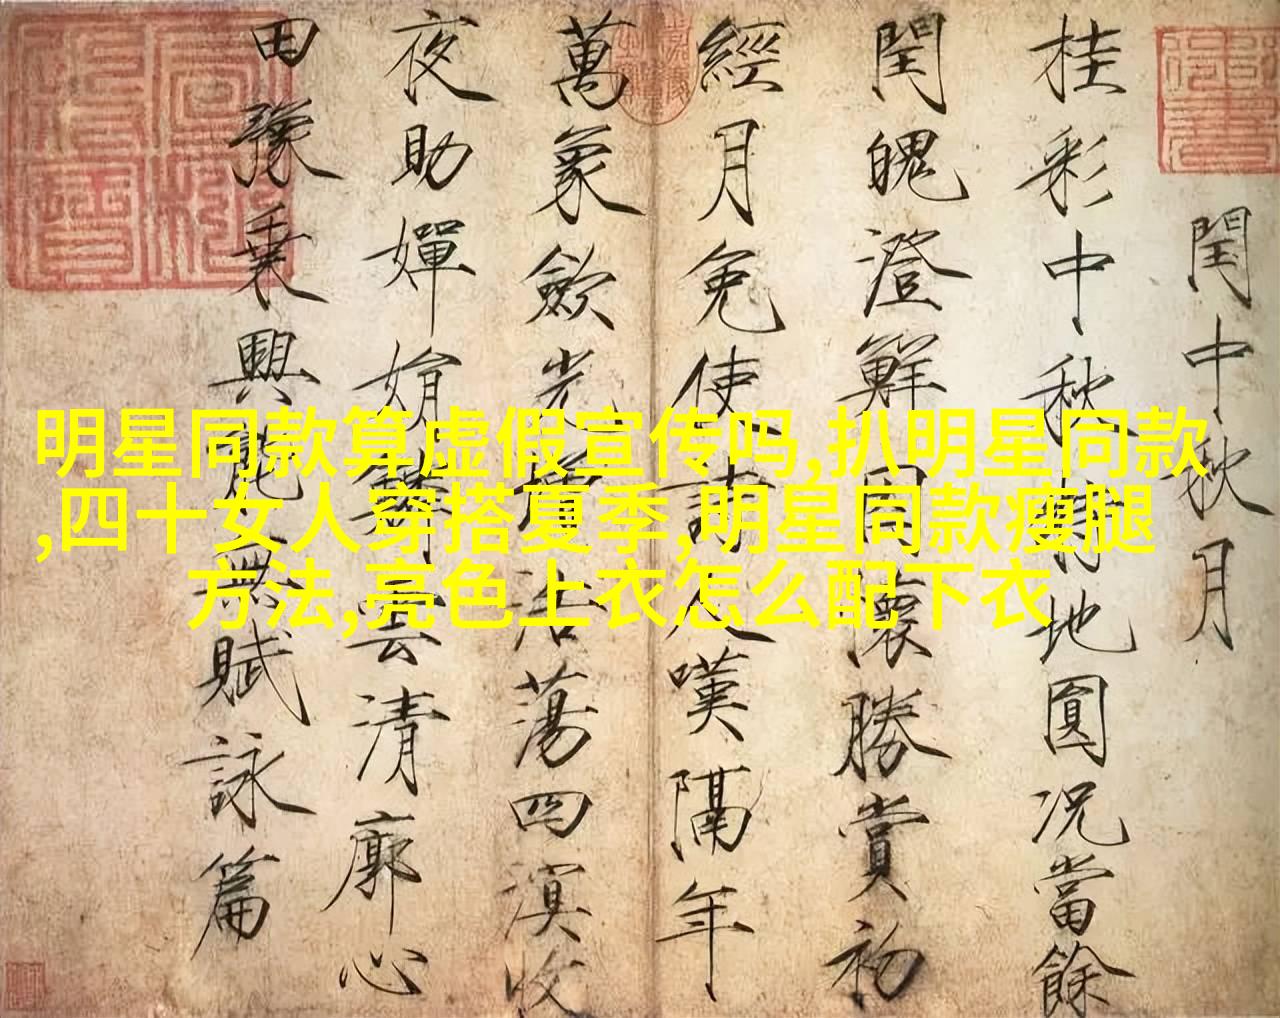 閏中秋月
桂彩中秋特地圓況當餘
閏魄澄鮮因懷勝賞初
經月免使詩人嘆隔年
萬象歛光增浩蕩四溟收
夜助嬋娟鱗雲清廓心
田豫乗興能無賦詠篇
明星同款算虚假宣传吗,扒明星同款
,四十女人穿搭夏季,明星同款瘦腿
方法,亮色上衣怎么配下衣